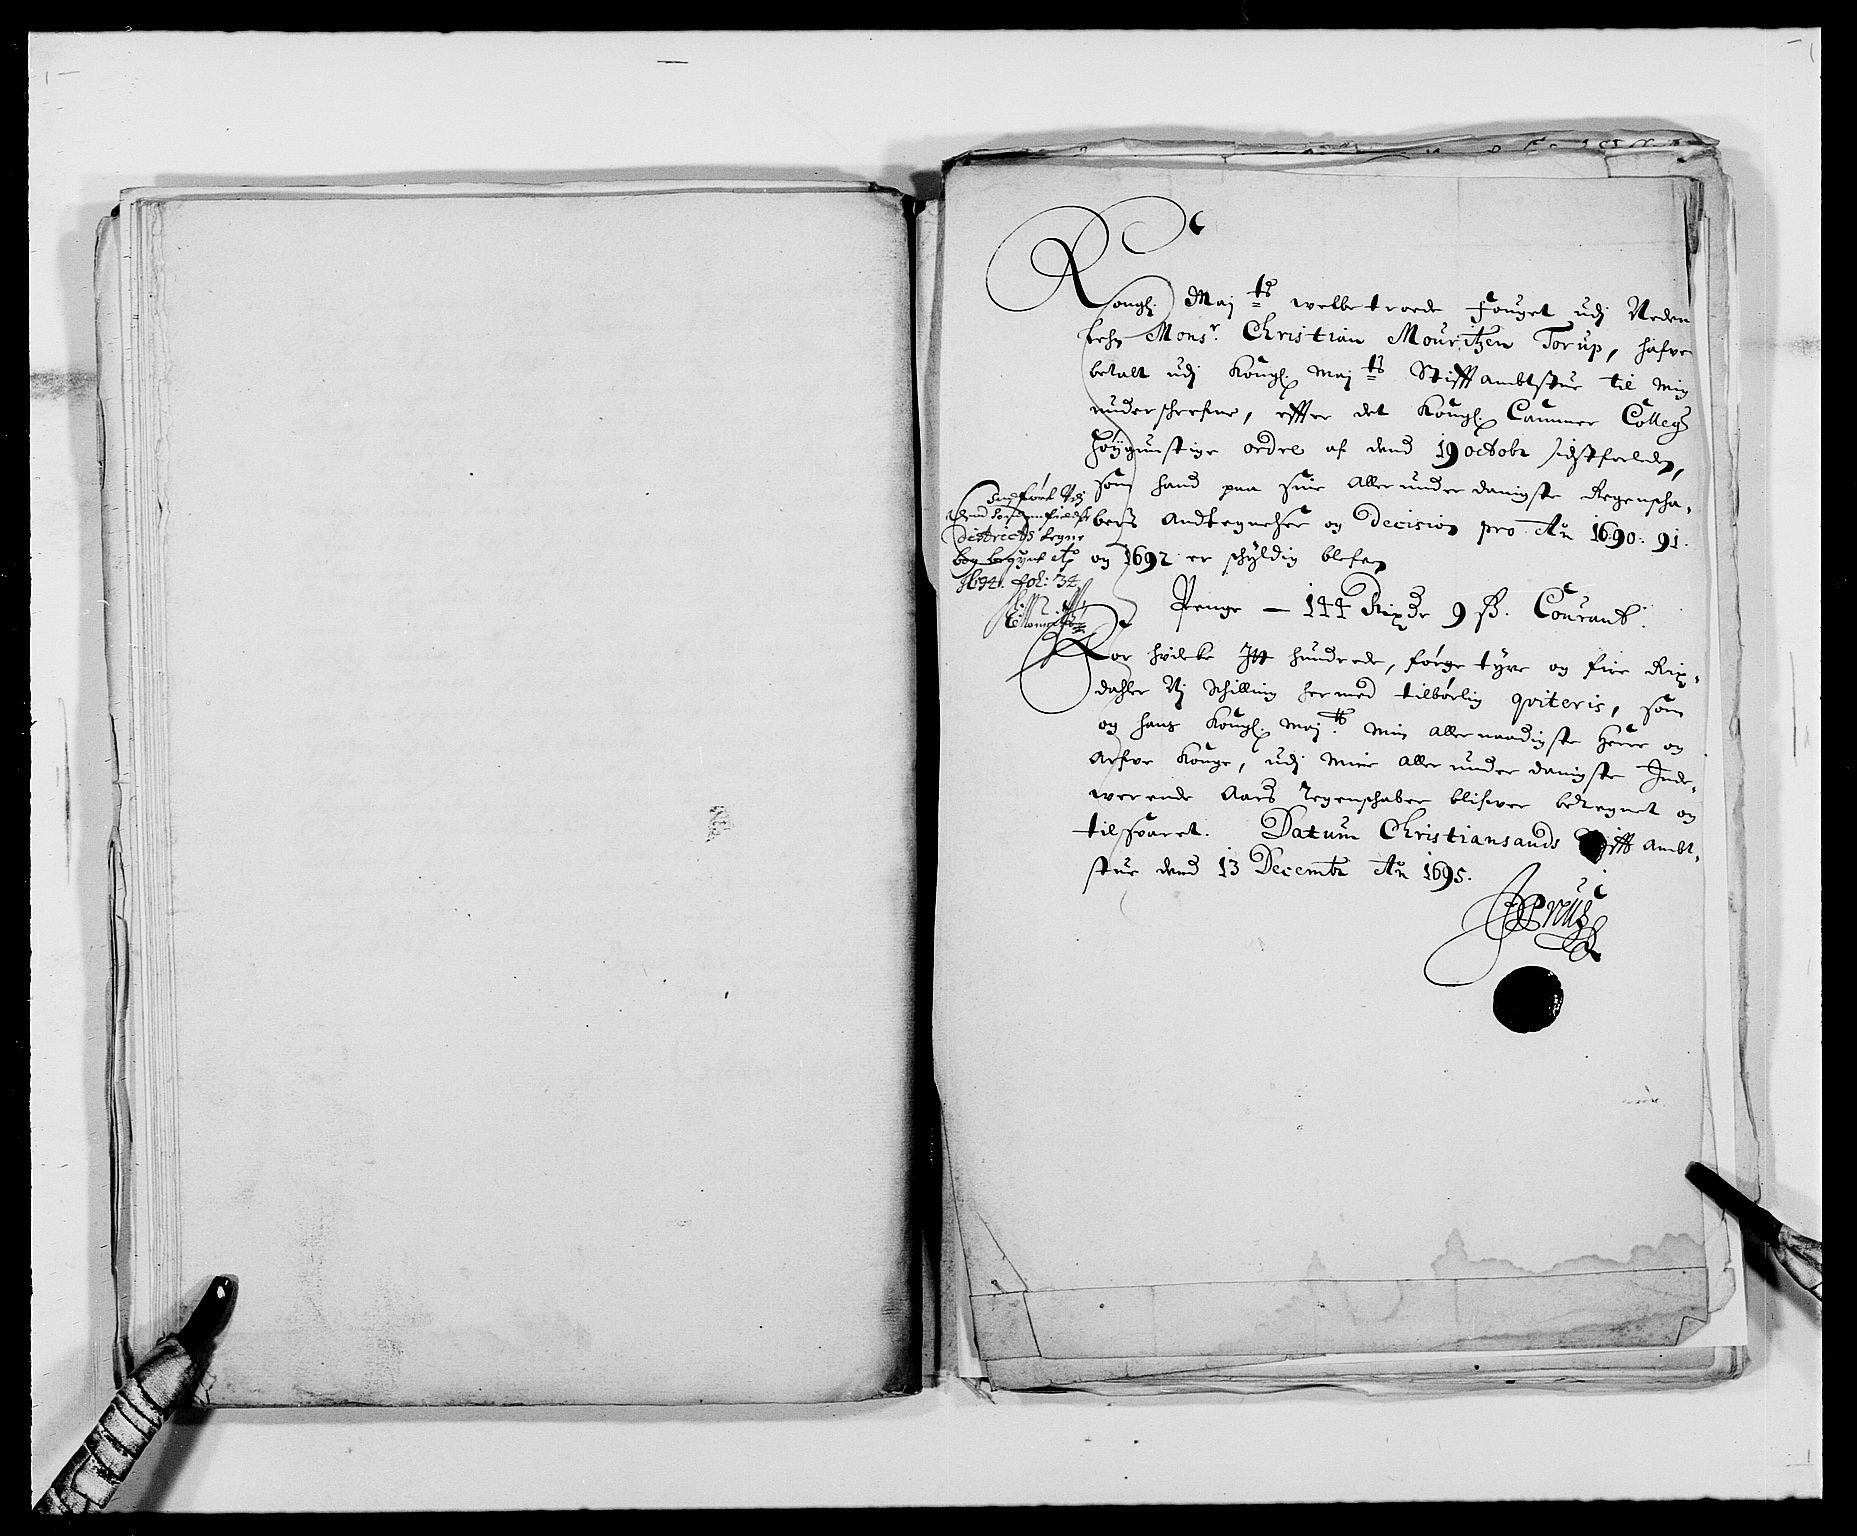 Kongl: Maj:ts welbetroede Fouget udj Neden
Lehn Mons:r Christian Mouritzen Torup, hafver
betalt udj Kongl: Maj:ts Stifftambtstue til mig
underschrefne, effter det Kongl: Cammer Collegs
høygunstige ordre af dend 19 octobr sidstleeden,
som hand paa sine allerunderdanigste Regenscha-
bers Andtegnelser og Decision pro Ao 1690. 91.
og 1692 er schyldig blefen
Penge — 144 Rixdr 9 ß. Courant.
For hvilke Itt hundrede, førgetyve og fire Rix-
dahler Nj Schilling hermed tilbørlig qviteris, som
og hans Kongl: Maj:ts min allernaadigste Herre og
Arfve Konge, udj mine allerunderdanigste Inde-
werende Aars Regenschaber blifver beregnet og
tilsvaret. Datum Christiansands Stifft Ambt-
stue dend 13 Decembr Ao 1695.
Preus
Indført Udj
Dend Sønden fieldske
Districts Regne
bog begynt Ao
1694. fol: 34